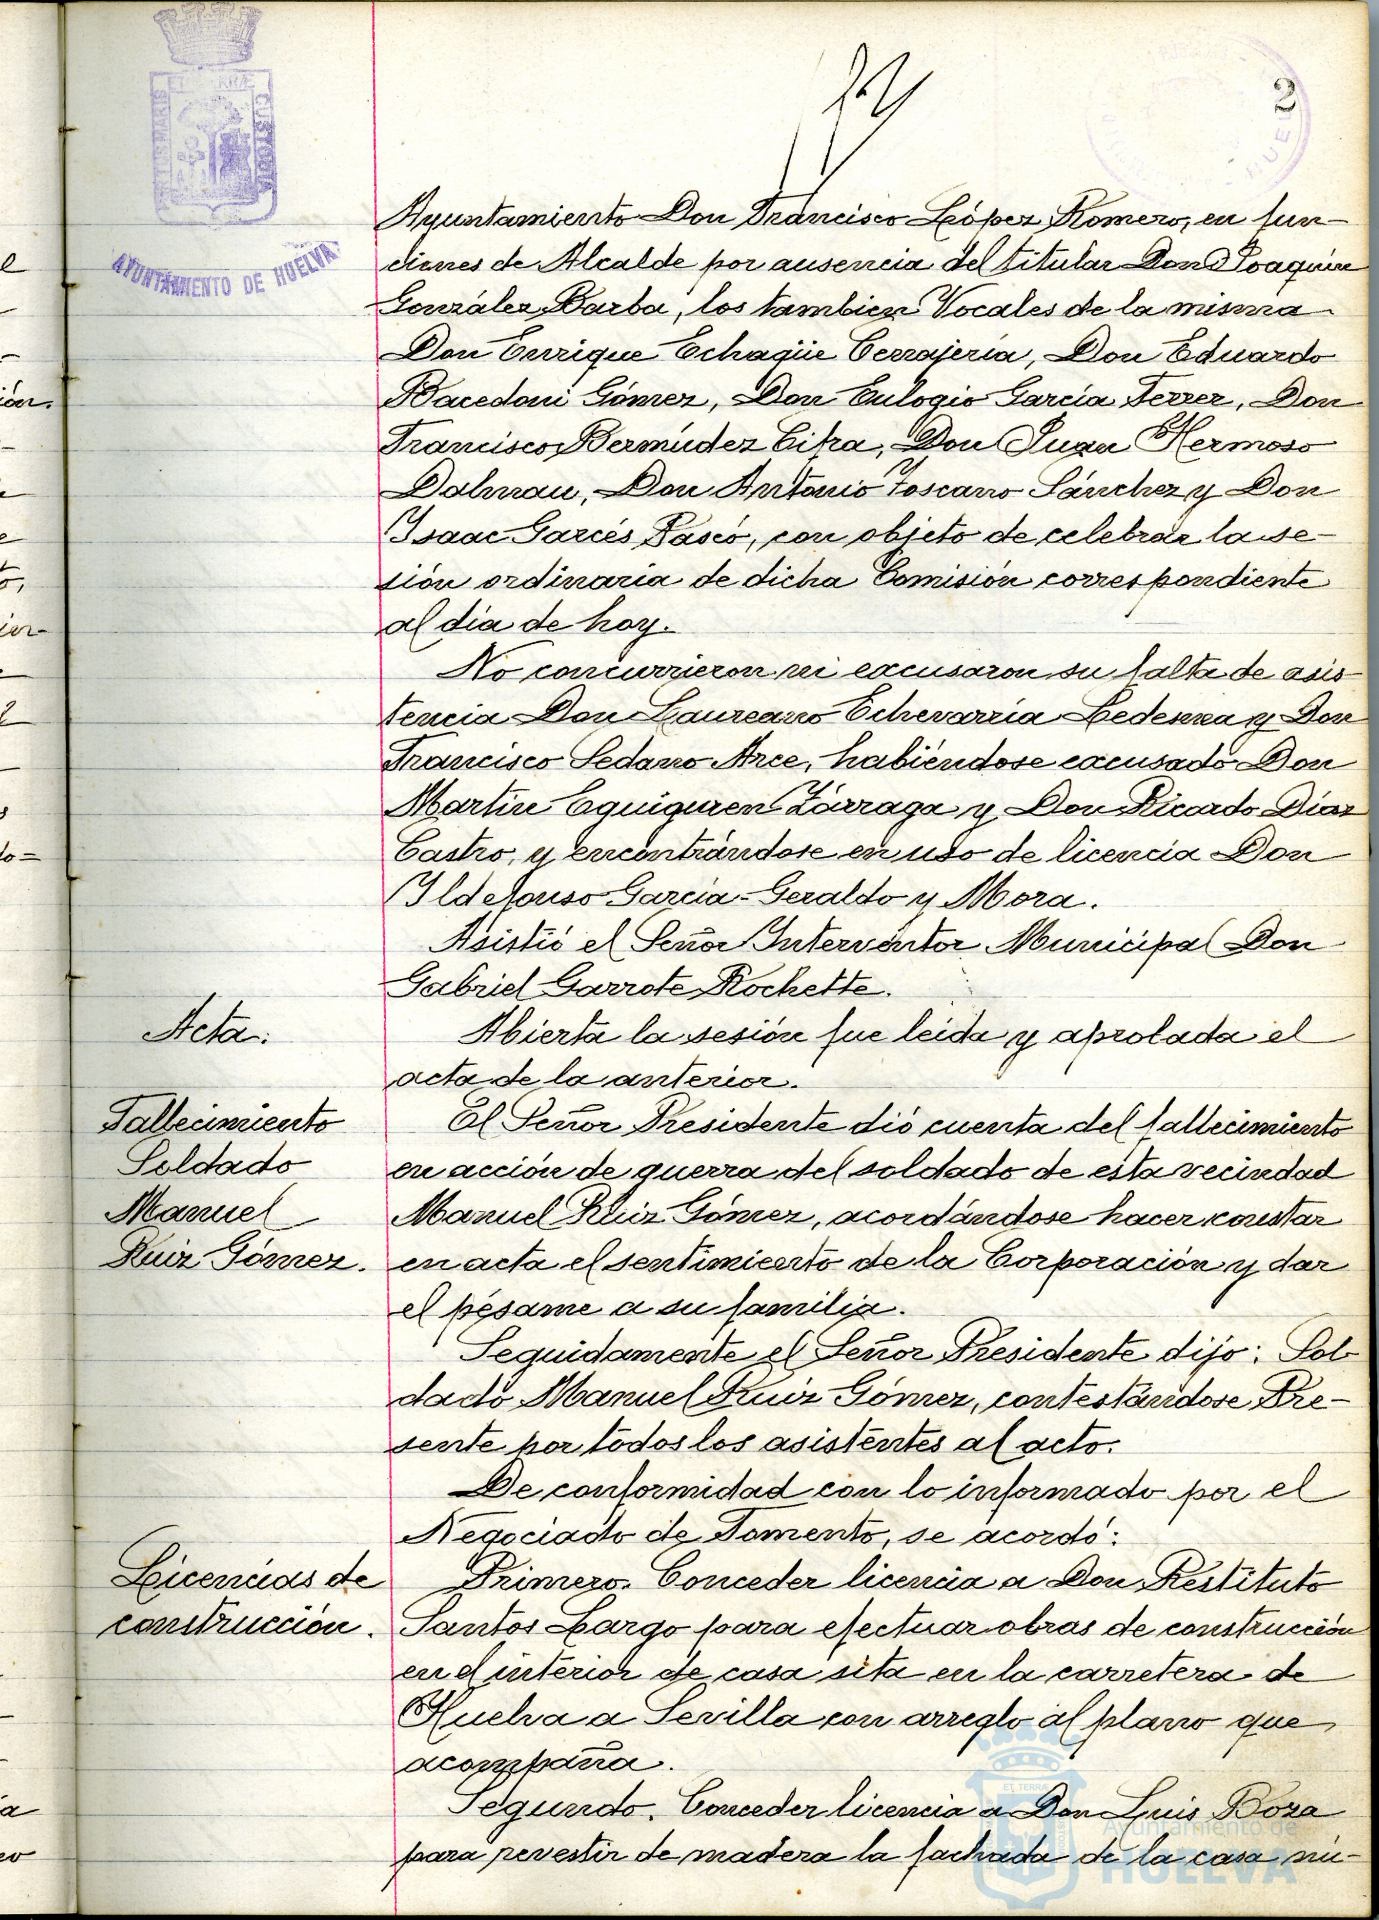 2
PORTUS MARIS ET TERRÆ CUSTODIA
AYUNTAMIENTO DE HUELVA
Ayuntamiento Don Francisco López Romero, en fun-
ciones de Alcalde por ausencia del titular Don Joaquín
González Barba, los tambien Vocales de la misma
Don Enrique Echagüe Cerrajería, Don Eduardo
Bacedoni Gómez, Don Eulogio García Ferrer, Don
Francisco Bermúdez Cifra, Don Juan Hermoso
Dalmau, Don Antonio Toscano Sánchez y Don
Isaac Garcés Pascó, con objeto de celebrar la se-
sión ordinaria de dicha Comisión correspondiente
al día de hoy.
No concurrieron ni excusaron su falta de asis-
tencia Don Laureano Echevarría Ledesma y Don
Francisco Sedano Arce, habiéndose excusado Don
Martín Eguiguren Zárraga y Don Ricardo Díaz
Castro, y encontrándose en uso de licencia Don
Ildefonso García-Geraldo y Mora.
Asistió el Señor Interventor Municipal Don
Gabriel Garrote Rochette.
Acta.
Abierta la sesión fue leída y aprobada el
acta de la anterior.
Fallecimiento
Soldado
Manuel
Ruiz Gómez.
El Señor Presidente dió cuenta del fallecimiento
en acción de guerra del soldado de esta vecindad
Manuel Ruiz Gómez, acordándose hacer constar
en acta el sentimiento de la Corporación y dar
el pésame a su familia.
Seguidamente el Señor Presidente dijo: Sol-
dado Manuel Ruiz Gómez, contestándose Pre-
sente por todos los asistentes al acto.
De conformidad con lo informado por el
Negociado de Fomento, se acordó:
Licencias de
construcción.
Primero. Conceder licencia a Don Restituto
Santos Largo para efectuar obras de construcción
en el interior de casa sita en la carretera de
Huelva a Sevilla con arreglo al plano que
acompaña.
Segundo. Conceder licencia a Don Luis Boza
para revestir de madera la fachada de la casa nú-
Ayuntamiento de
HUELVA